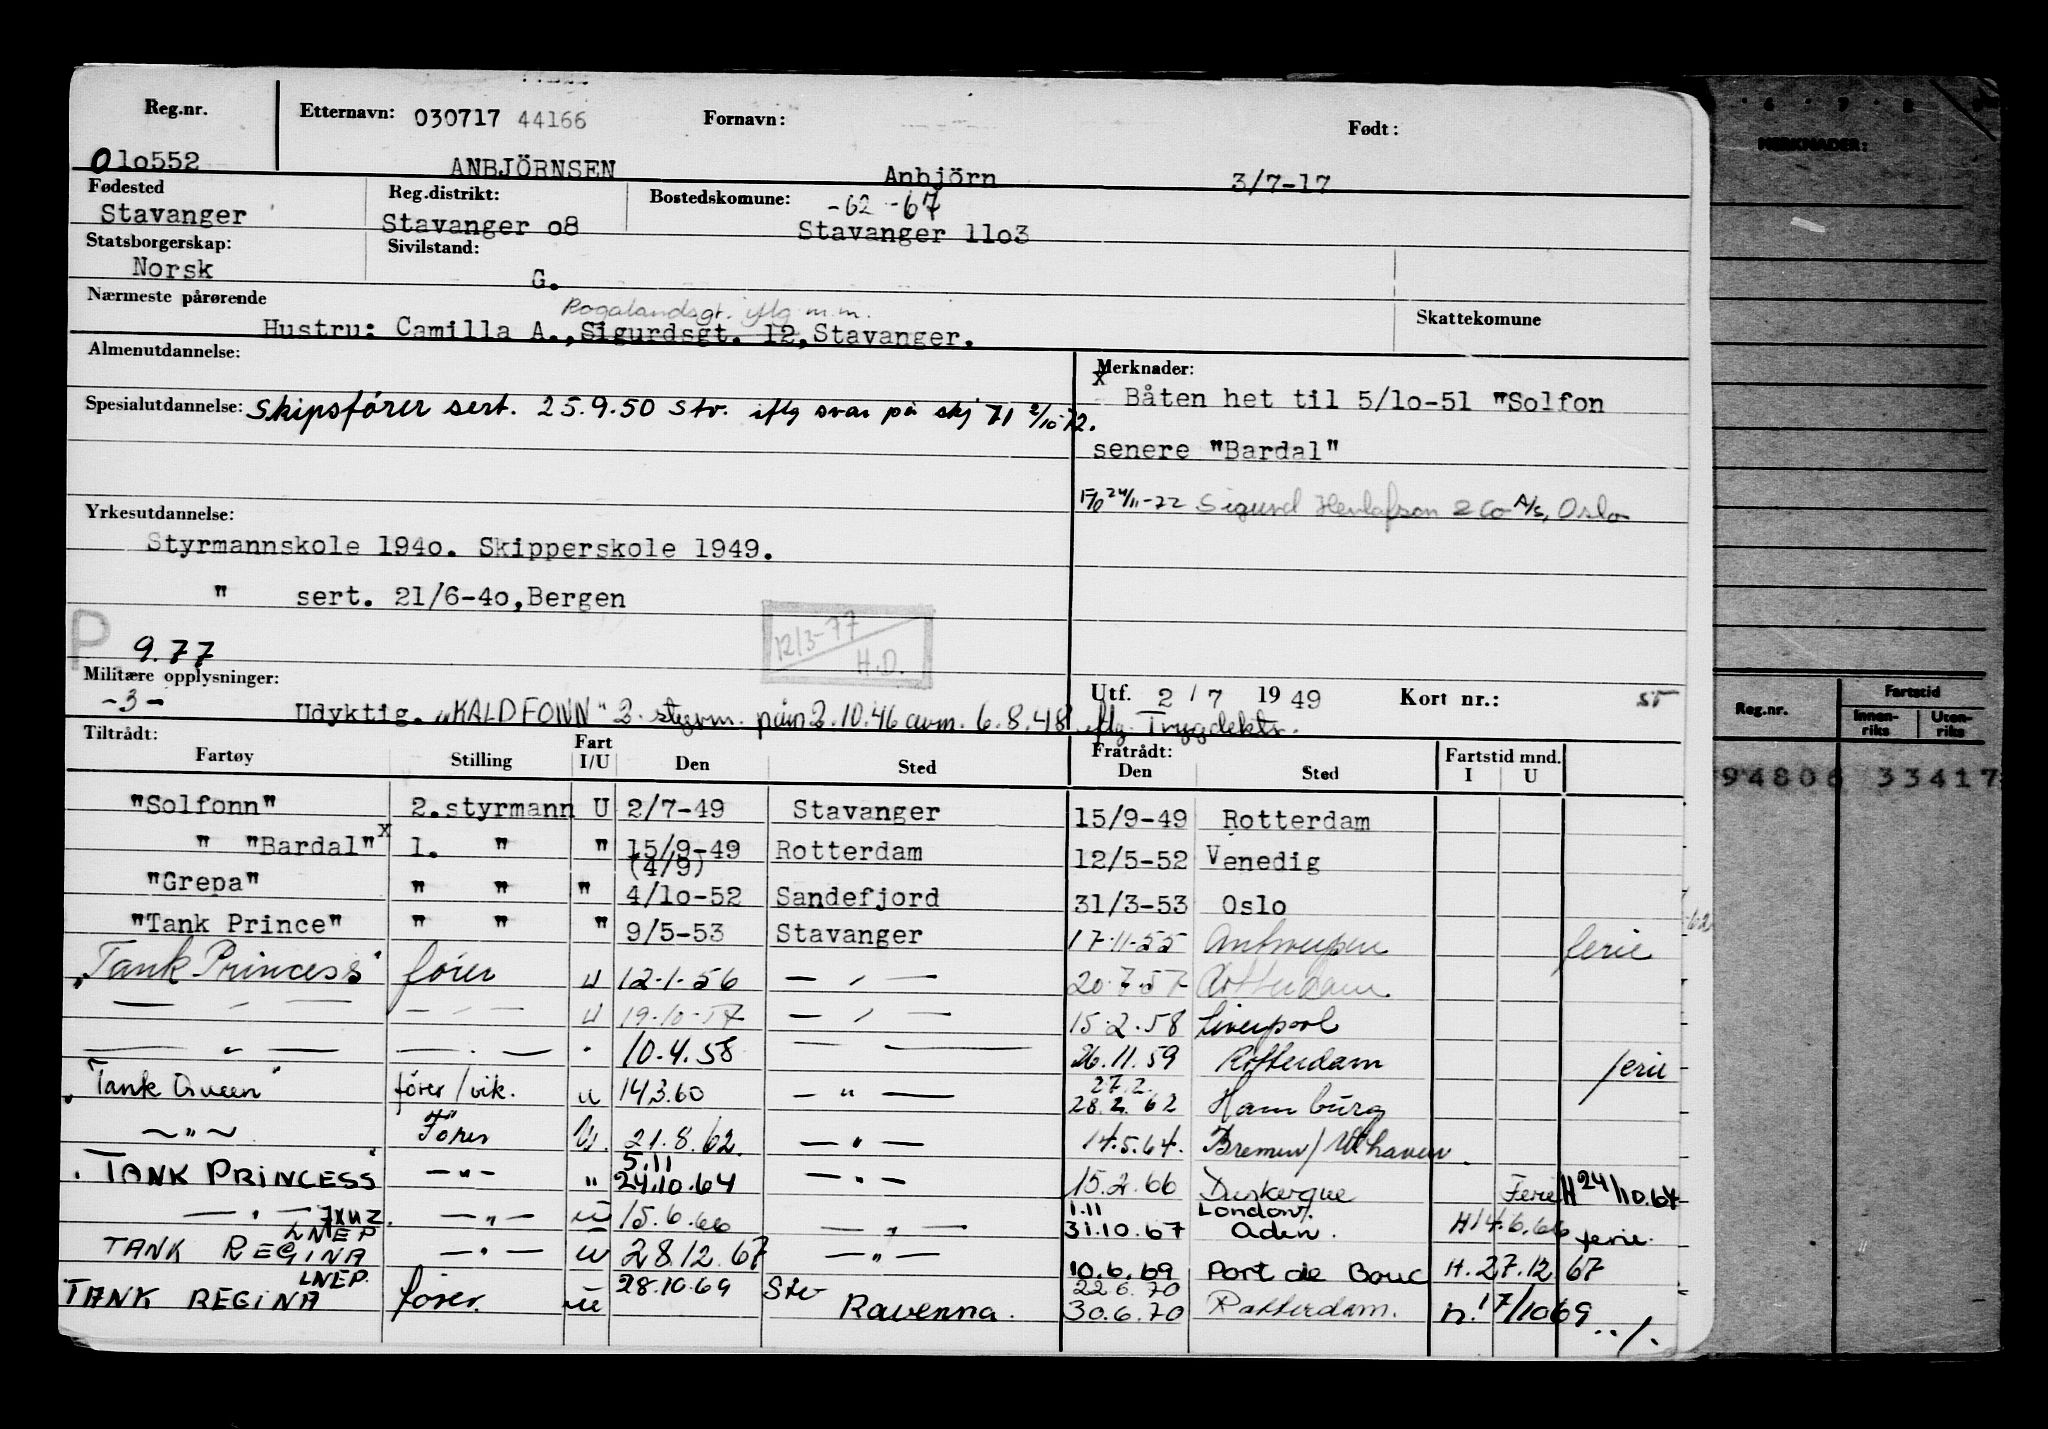 Reg.nr. Etternavn: 030717 44166 Fornavn: Født:
0lo552 ANBJÖRNSEN Anbjörn 3/7-17
Fødested Reg.distrikt: Bostedskomune: -62 -67
Stavanger Stavanger o8 Stavanger 11o3
Statsborgerskap: Sivilstand:
Norsk G.
Nærmeste pårørende Rogalandsgt. iflg m.m. Skattekomune
Hustru: Camilla A., Sigurdsgt. 12, Stavanger.
Almenutdannelse: Merknader:
x Båten het til 5/lo-51 "Solfon
Spesialutdannelse: Skipsfører sert. 25.9.50 Stv. iflg svar på skj 71 2/10-72.
senere "Bardal"
24/11-72 Sigurd & Co A/S, Oslo
Yrkesutdannelse:
Styrmannskole 194o. Skipperskole 1949.
" sert. 21/6-4o, Bergen
P 9.77 12/3-77 H.D.
Militære opplysninger: Utf. 2 / 7 1949 Kort nr.:
-3- Udyktig. "KALDFONN" 2. styrm. påm 2.10.46 avm. 6.8.48 iflg. Trygdektr.
Tiltrådt: Fart Fratrådt: Fartstid mnd.
Fartøy Stilling I/U Den Sted Den Sted I U
"Solfonn" 2.styrmann U 2/7-49 Stavanger 15/9-49 Rotterdam
" "Bardal" x 1. " " 15/9-49 Rotterdam 12/5-52 Venedig
(4/9)
"Grepa" " " " 4/lo-52 Sandefjord 31/3-53 Oslo
"Tank Prince" " " " 9/5-53 Stavanger 17.11.55 Antwerpen ferie
"Tank Princess" fører u 12.1.56 — " — 20.7.57 Rotterdam
— " — — " — u 19.10.57 — " — 15.2.58 Liverpool
— " — — " — " 10.4.58 — " — 26.11.59 Rotterdam ferie
27.2.
"Tank Queen" fører/vik. u 14.3.60 — " — 28.2.62 Hamburg
— " — Fører U. 21.8.62. — " — 14.5.64. Bremen/W.haven.
5.11
"TANK PRINCESS" — " — " 24.10.64 — " — 15.2.66 Dunkerque Ferie H 24/10.64
1.11 London/.
— " — JXUZ. — " — u 15.6.66 — " — 31.10.67 Aden. H 14.6.66 ferie.
LNEP
TANK REGINA — " — u 28.12.67 — " — 10.6.69 Port de Bouc H.27.12.67
LNEP. 22.6.70
TANK REGINA fører. u 28.10.69 Stv Ravenna. 30.6.70 Rotterdam. n. 17/10 69
../.
6 . 7 . 8
MERKNADER:
Reg.nr. Fartstid
Innen-riks Uten-riks
94806 33417